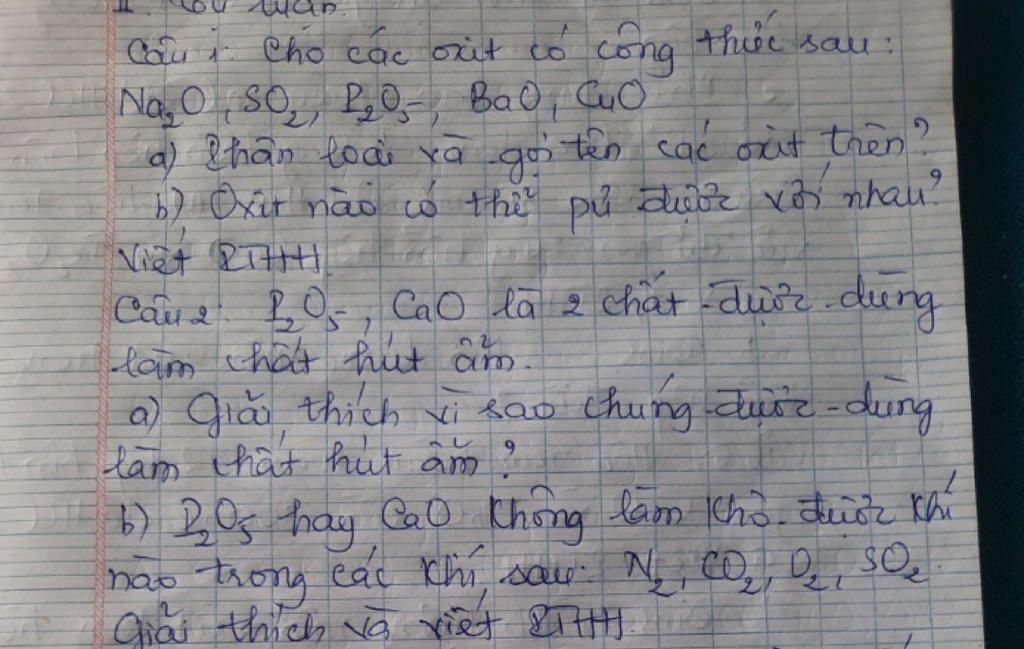 II. Tự luận.
Câu 1: Cho các oxit có công thức sau:
Na₂O, SO₂, P₂O₅, BaO, CuO
a) Phân loại và gọi tên các oxit trên?
b) Oxit nào có thể pứ được với nhau?
Viết PTHH.
Câu 2: P₂O₅, CaO là 2 chất được dùng
làm chất hút ẩm.
a) Giải thích vì sao chúng được dùng
làm chất hút ẩm?
b) P₂O₅ hay CaO không làm khô được khí
nào trong các khí sau: N₂, CO₂, O₂, SO₂.
Giải thích và viết PTHH.